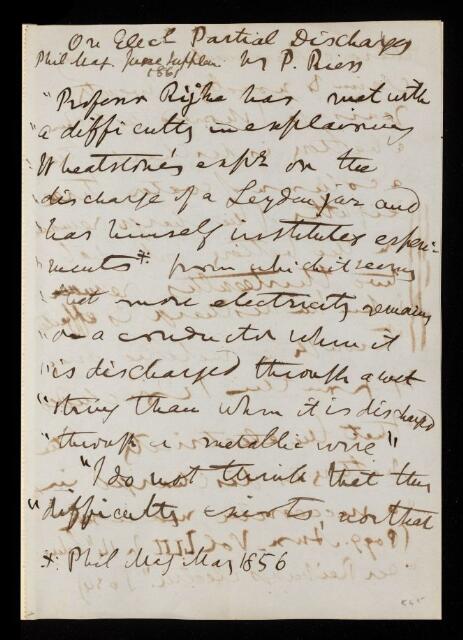 On Elec¹ Partial Discharges
Phil Mag. June Supplem. by P. Riess
1861
"Professor Rijke has met with
"a difficulty in explaining
Wheatstone's expts on the
discharge of a Leyden jar and
has himself instituted experi-
"ments* from which it seems
"that more electricity remains
"on a conductor when it
"is discharged through a wet
"string than when it is discharged
"through a metallic wire"
"I do not think that this
"difficulty exists, nor that
* Phil Mag May 1856